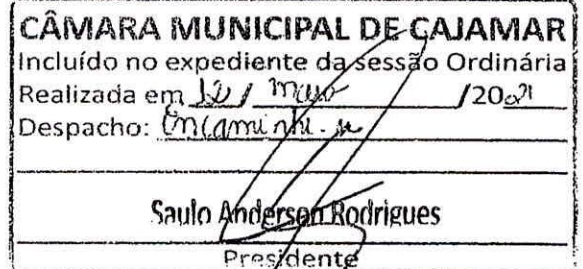 CÂMARA MUNICIPAL DE CAJAMAR
Incluído no expediente da sessão Ordinária
Realizada em 12 / maio /2021
Despacho: Encaminhi-se
Saulo Anderson Rodrigues
Presidente